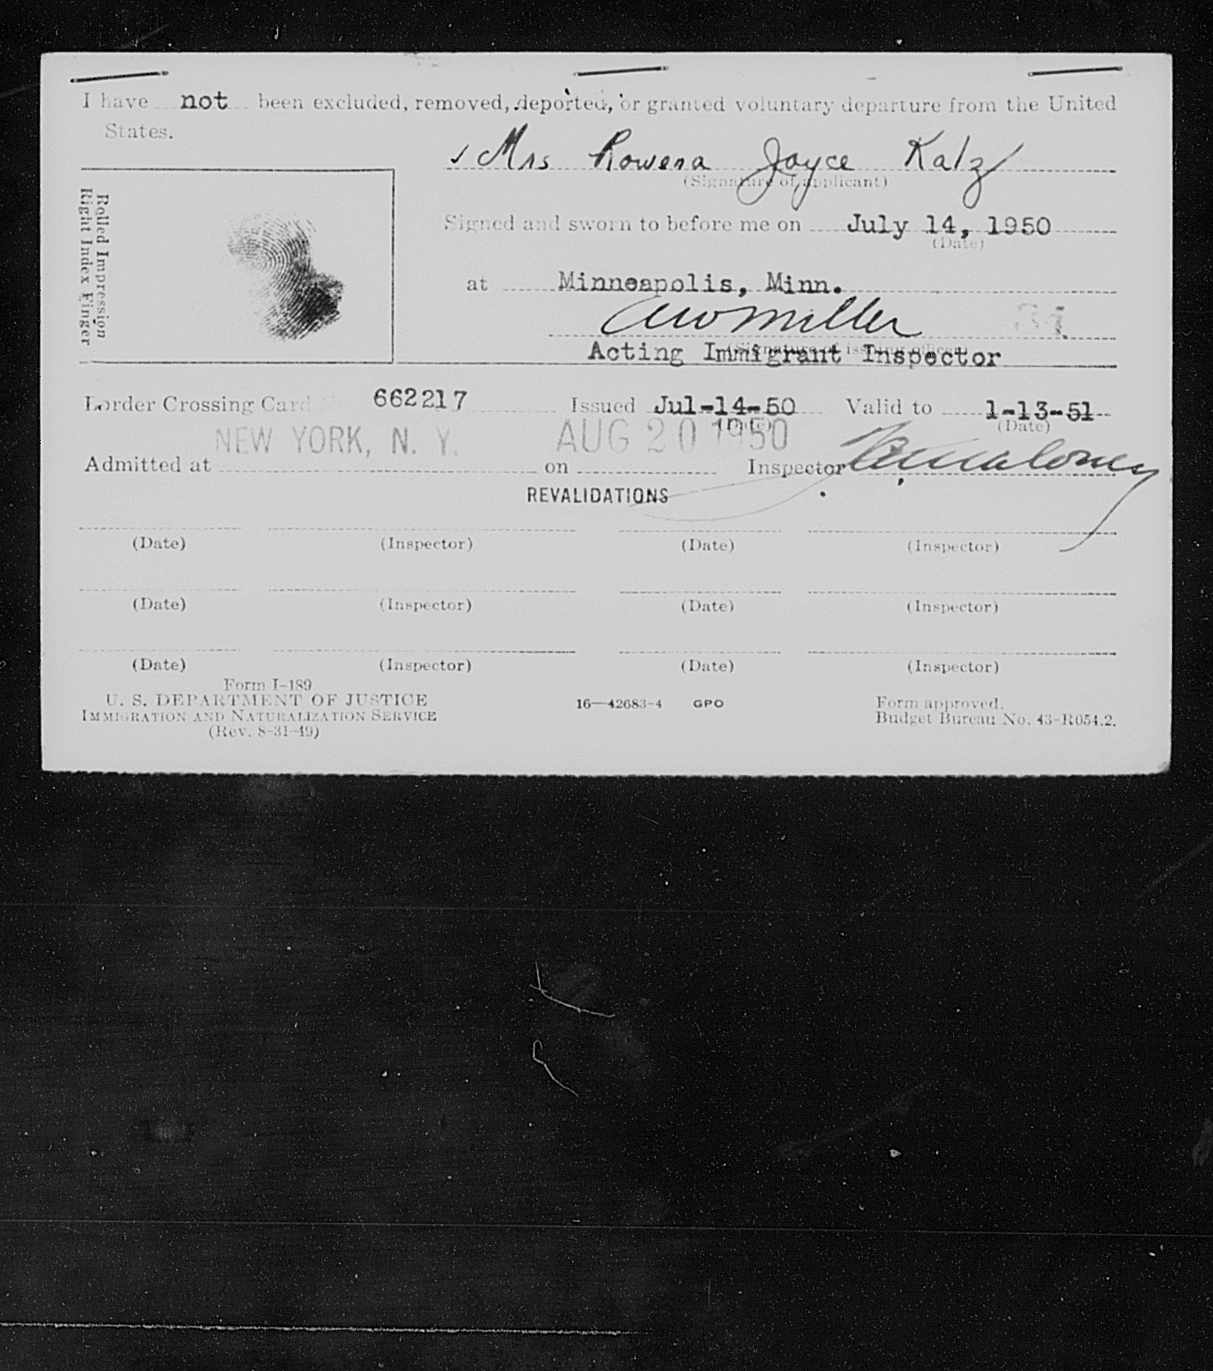 I have not been excluded, removed, deported, or granted voluntary departure from the United
States.
Mrs Rowena Joyce Katz
(Signature of applicant)
Rolled Impression
Right Index Finger
Signed and sworn to before me on July 14, 1950
(Date)
at Minneapolis, Minn.
AW Miller
34
Acting Immigrant Inspector
Border Crossing Card 662217 Issued Jul-14-50 Valid to 1-13-51
(Date)
NEW YORK, N. Y. AUG 20 1950
Admitted at on Inspector
REVALIDATIONS
(Date) (Inspector) (Date) (Inspector)
(Date) (Inspector) (Date) (Inspector)
(Date) (Inspector) (Date) (Inspector)
Form I-189
U. S. DEPARTMENT OF JUSTICE
IMMIGRATION AND NATURALIZATION SERVICE
(Rev. 8-31-49)
16—42683-4 GPO
Form approved.
Budget Bureau No. 43-R054.2.